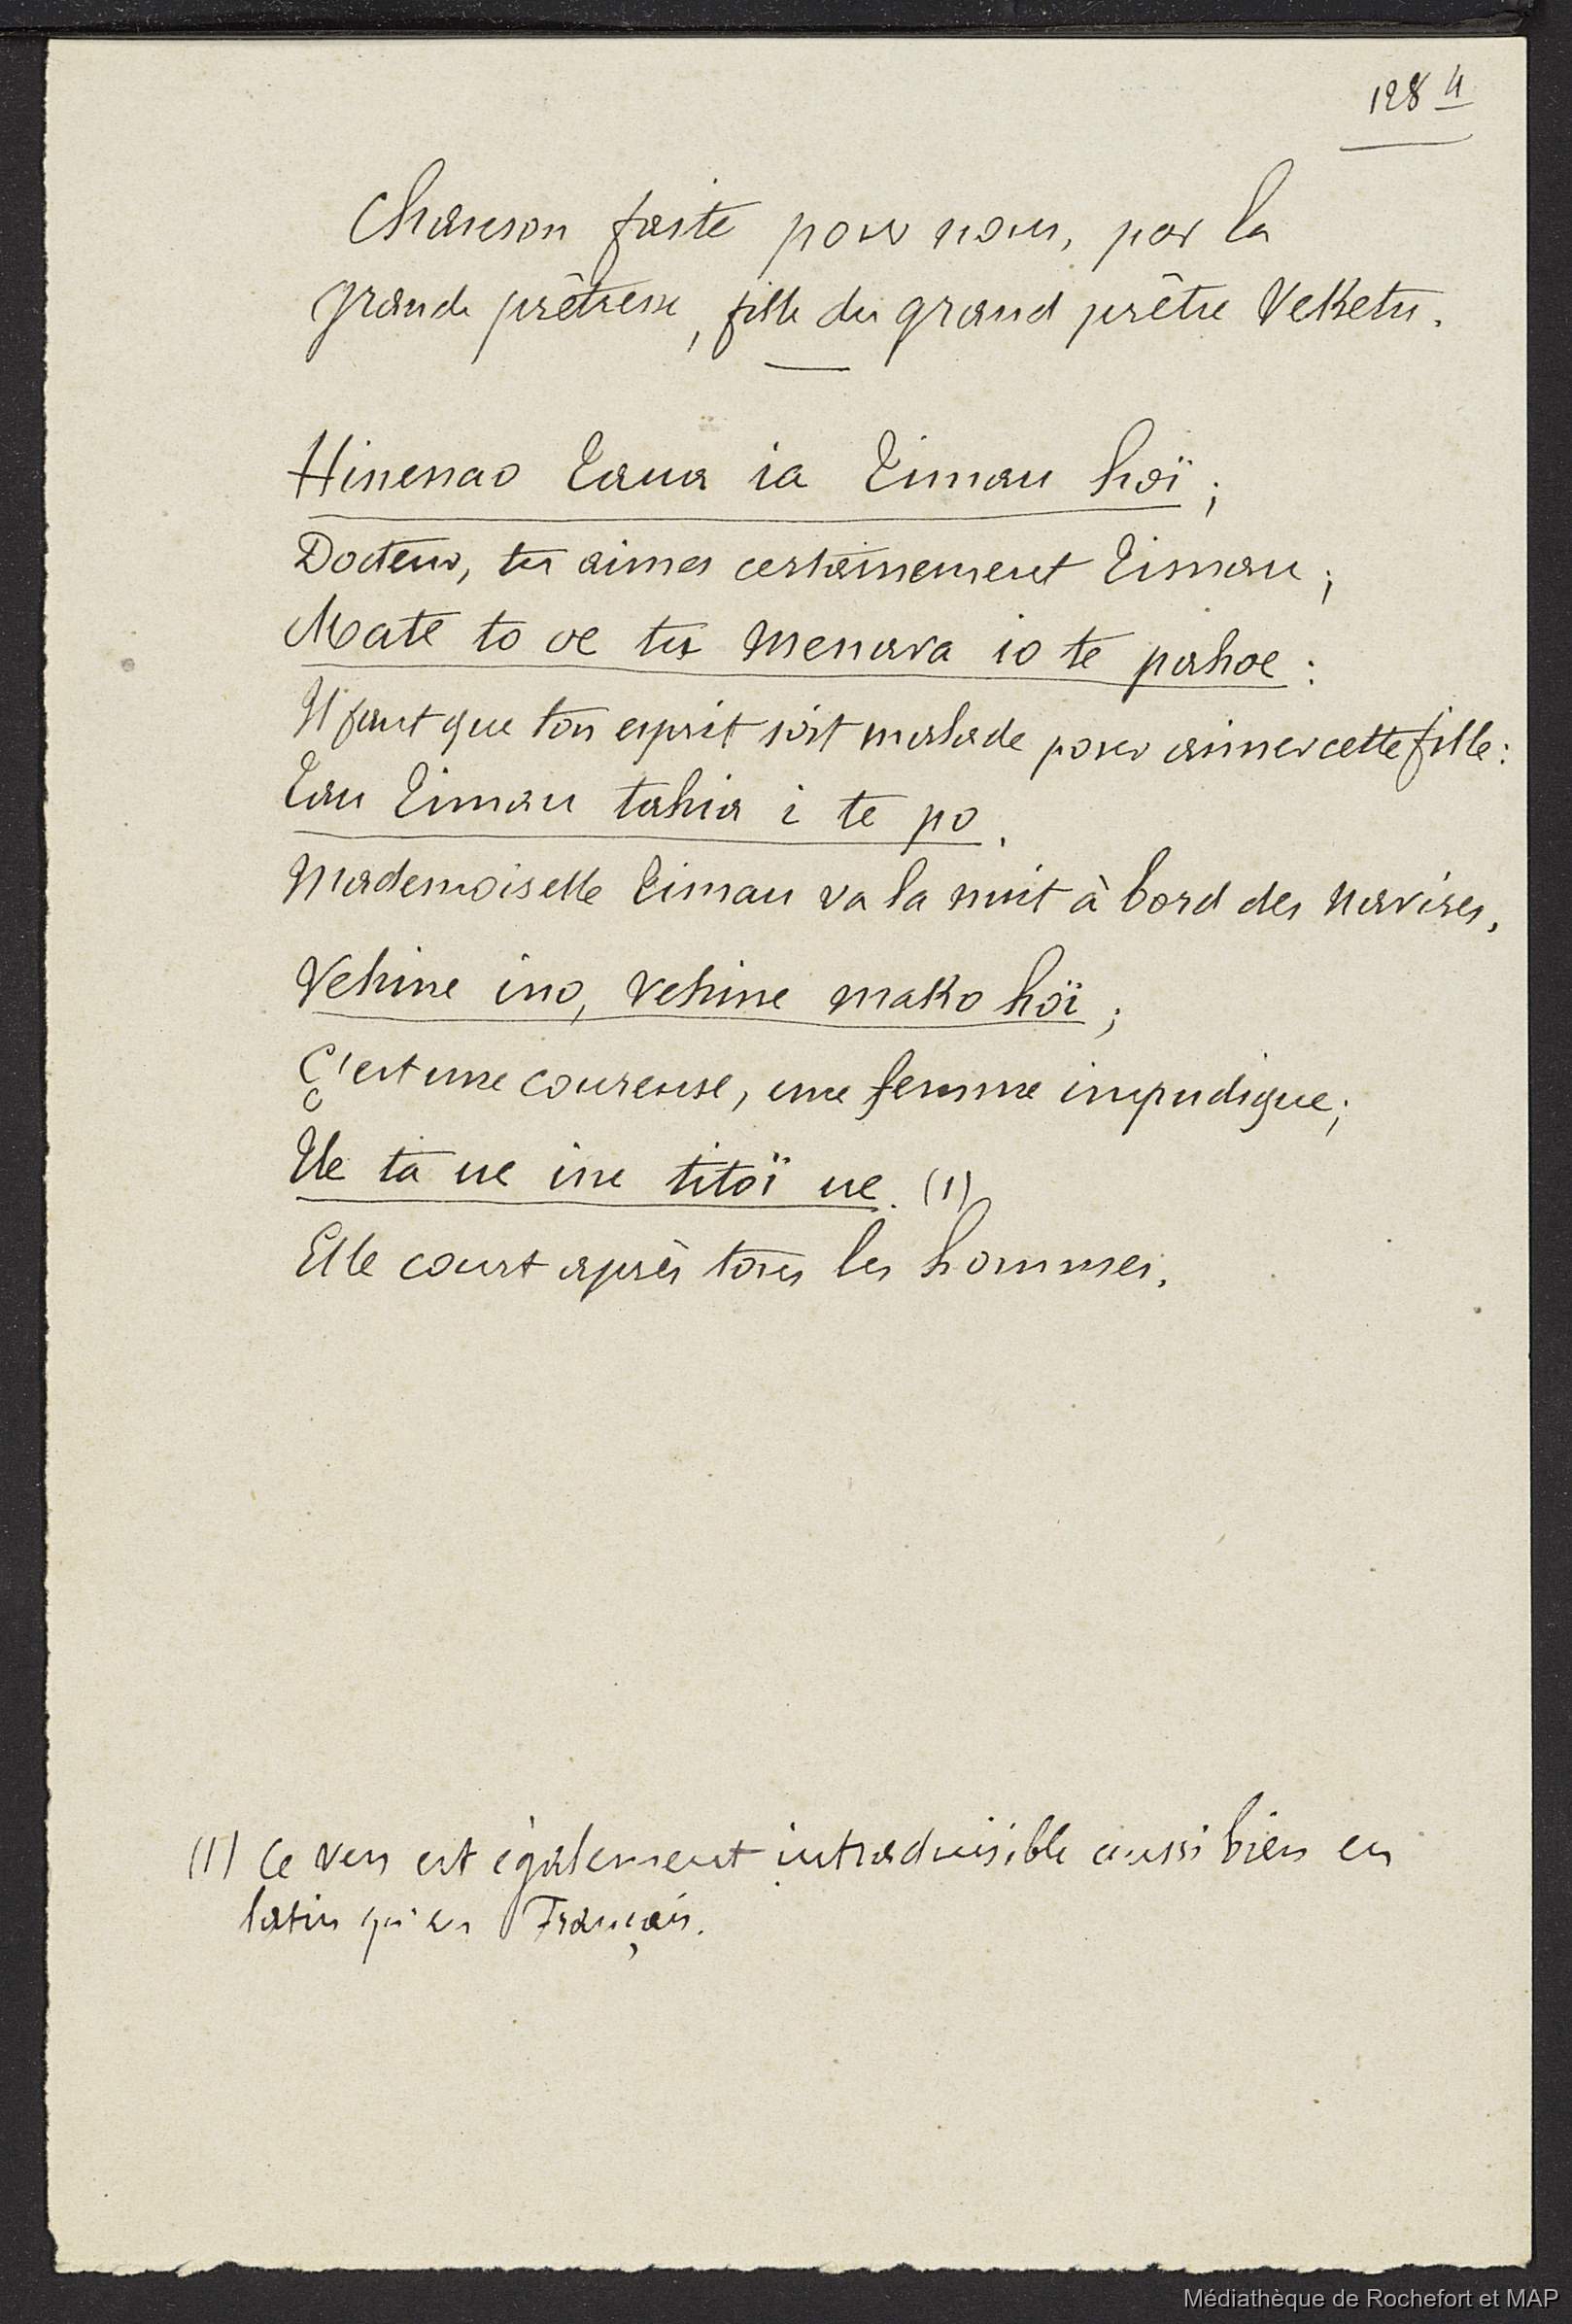 128 4
Chanson faite pour nous, par la
grande prêtresse, fille du grand prêtre Veketu.
Hinenao Taua ia Timau hoï ;
Docteur, tu aimes certainement Timau ;
Mate to oe tu menava io te pahoe :
Il faut que ton esprit soit malade pour aimer cette fille :
Tau Timau tahia i te po.
Mademoiselle Timau va la nuit à bord des navires.
Vehine ino, vehine mako hoï ;
C'est une coureuse, une femme impudique ;
Ue ta ue ine titoï ue. (1)
Elle court après tous les hommes.
(1) Ce vers est également intraduisible aussi bien en
latin qu'en Français.
Médiathèque de Rochefort et MAP